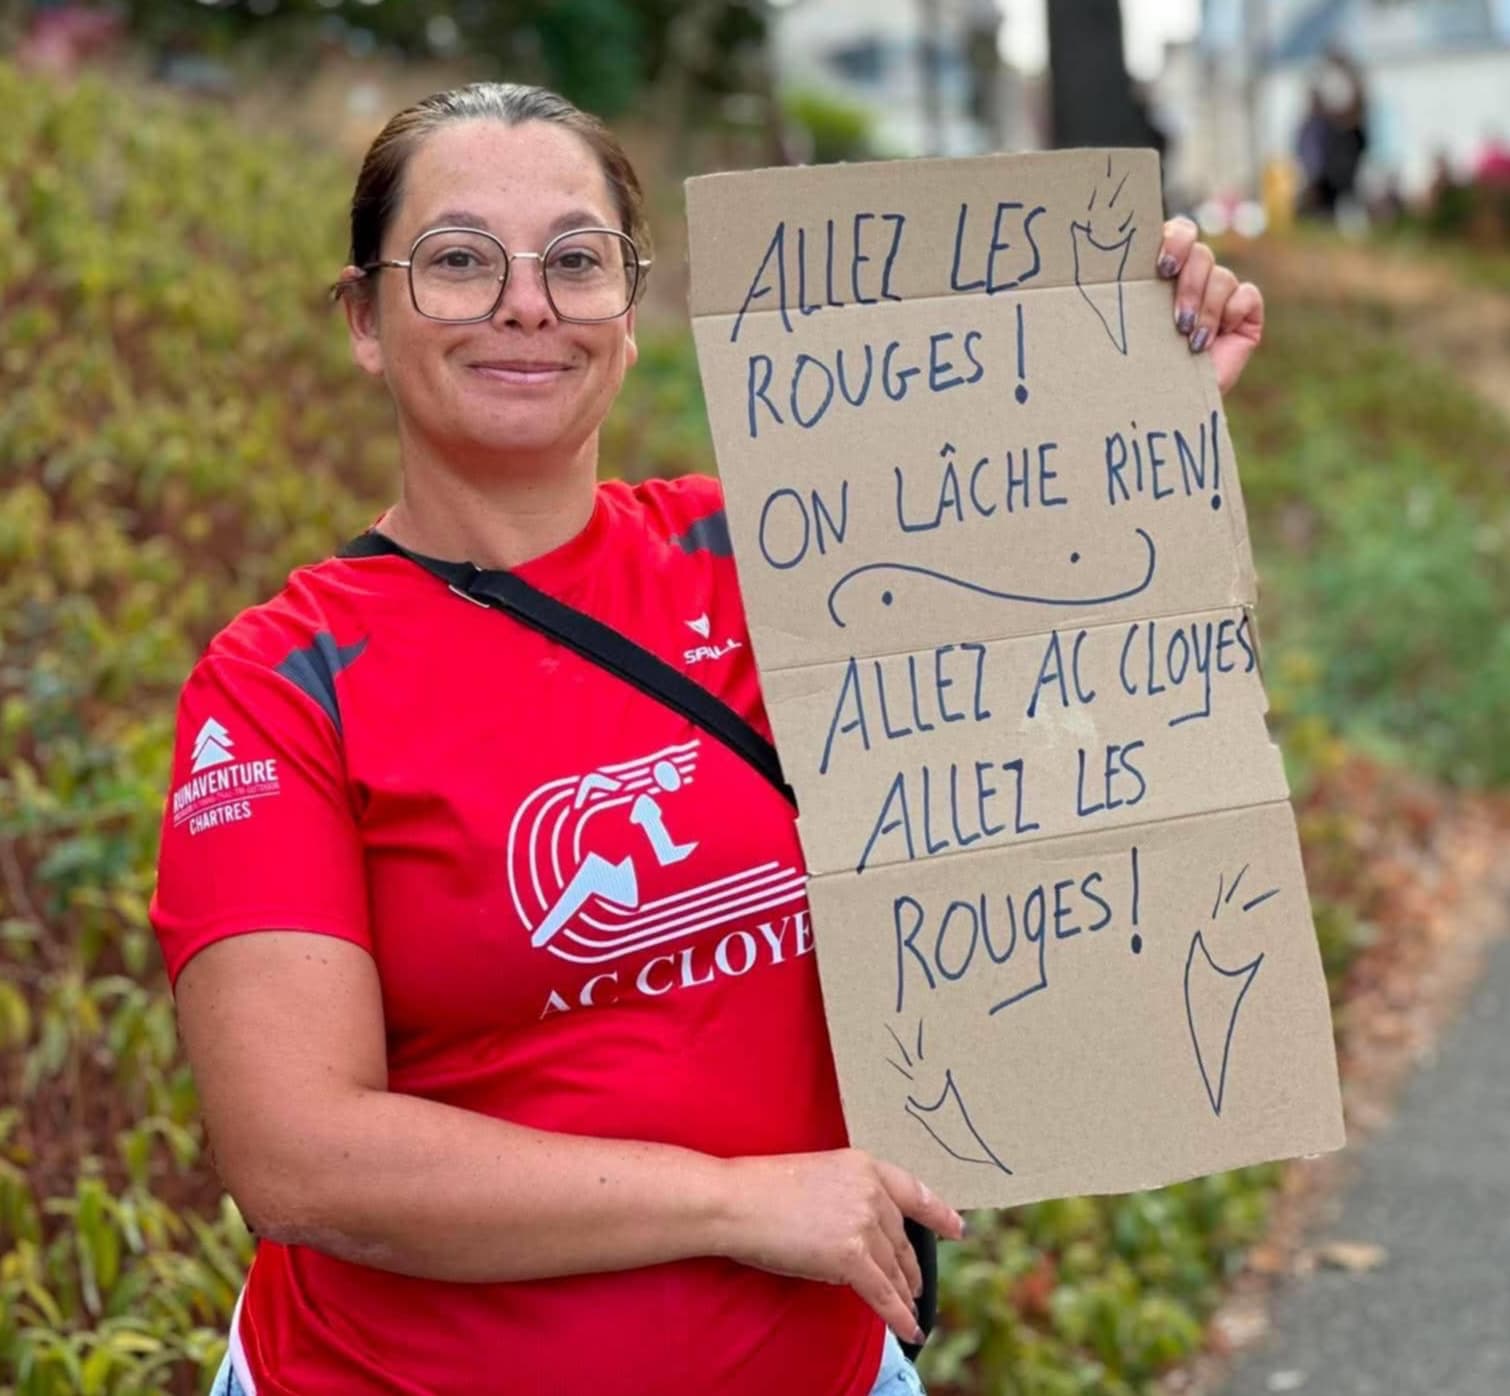 ALLEZ LES
ROUGES !
ON LÂCHE RIEN !
ALLEZ AC CLOYES
ALLEZ LES
ROUGES !
SPALL
RUNAVENTURE
CHARTRES
AC CLOYE